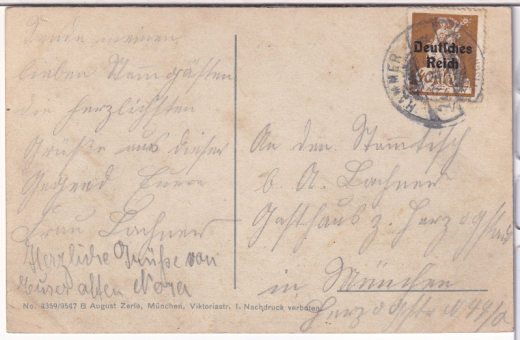 Sende meinen
lieben Stammgästen
die herzlichsten
Grüße aus dieser
Gegend Eure
Frau Lachner
Herzliche Grüsse von
Eurer alten
No. 4599/9547 B August Zerle, München, Viktoriastr. 1. Nachdruck verboten.
Deutsches
Reich
HAMMER
An den Stammtisch
b. A. Lachner
Gasthaus z. Herzogstand
in München
Herzogstr. N. 49/0